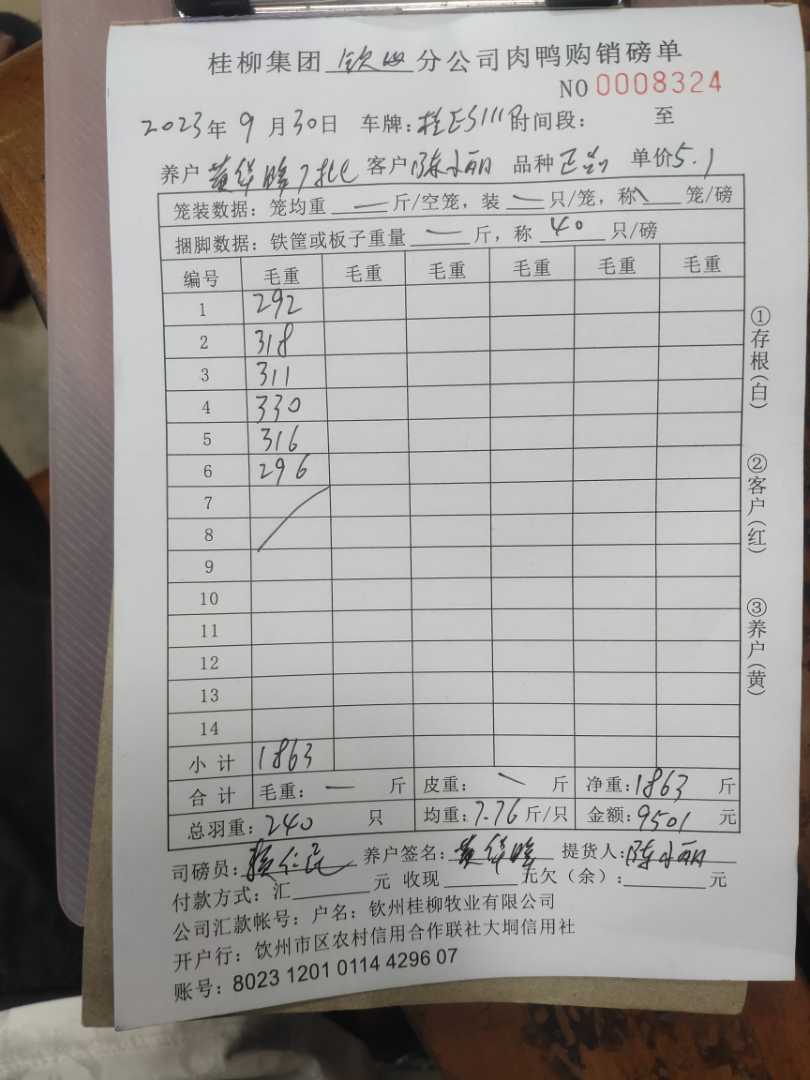 桂柳集团 钦州 分公司肉鸭购销磅单
NO 0008324
2023年 9 月30日 车牌: 时间段: 至
养户 黄华 客户 陈小丽 品种 正 单价5.1
笼装数据:笼均重 — 斤/空笼,装 — 只/笼,称 \ 笼/磅
捆脚数据:铁筐或板子重量 — 斤,称 40 只/磅
编号 毛重 毛重 毛重 毛重 毛重 毛重
1 292
2 318
3 311
4 330
5 316
6 296
7
8
9
10
11
12
13
14
小计 1863
合计 毛重: — 斤 皮重: \ 斤 净重:1863 斤
总羽重:240 只 均重:7.76斤/只 金额:9501 元
司磅员: 养户签名:黄华 提货人:陈小丽
付款方式:汇 元 收现 元欠(余): 元
公司汇款帐号:户名:钦州桂柳牧业有限公司
开户行:钦州市区农村信用合作联社大垌信用社
账号:8023 1201 0114 4296 07
①存根(白)
②客户(红)
③养户(黄)